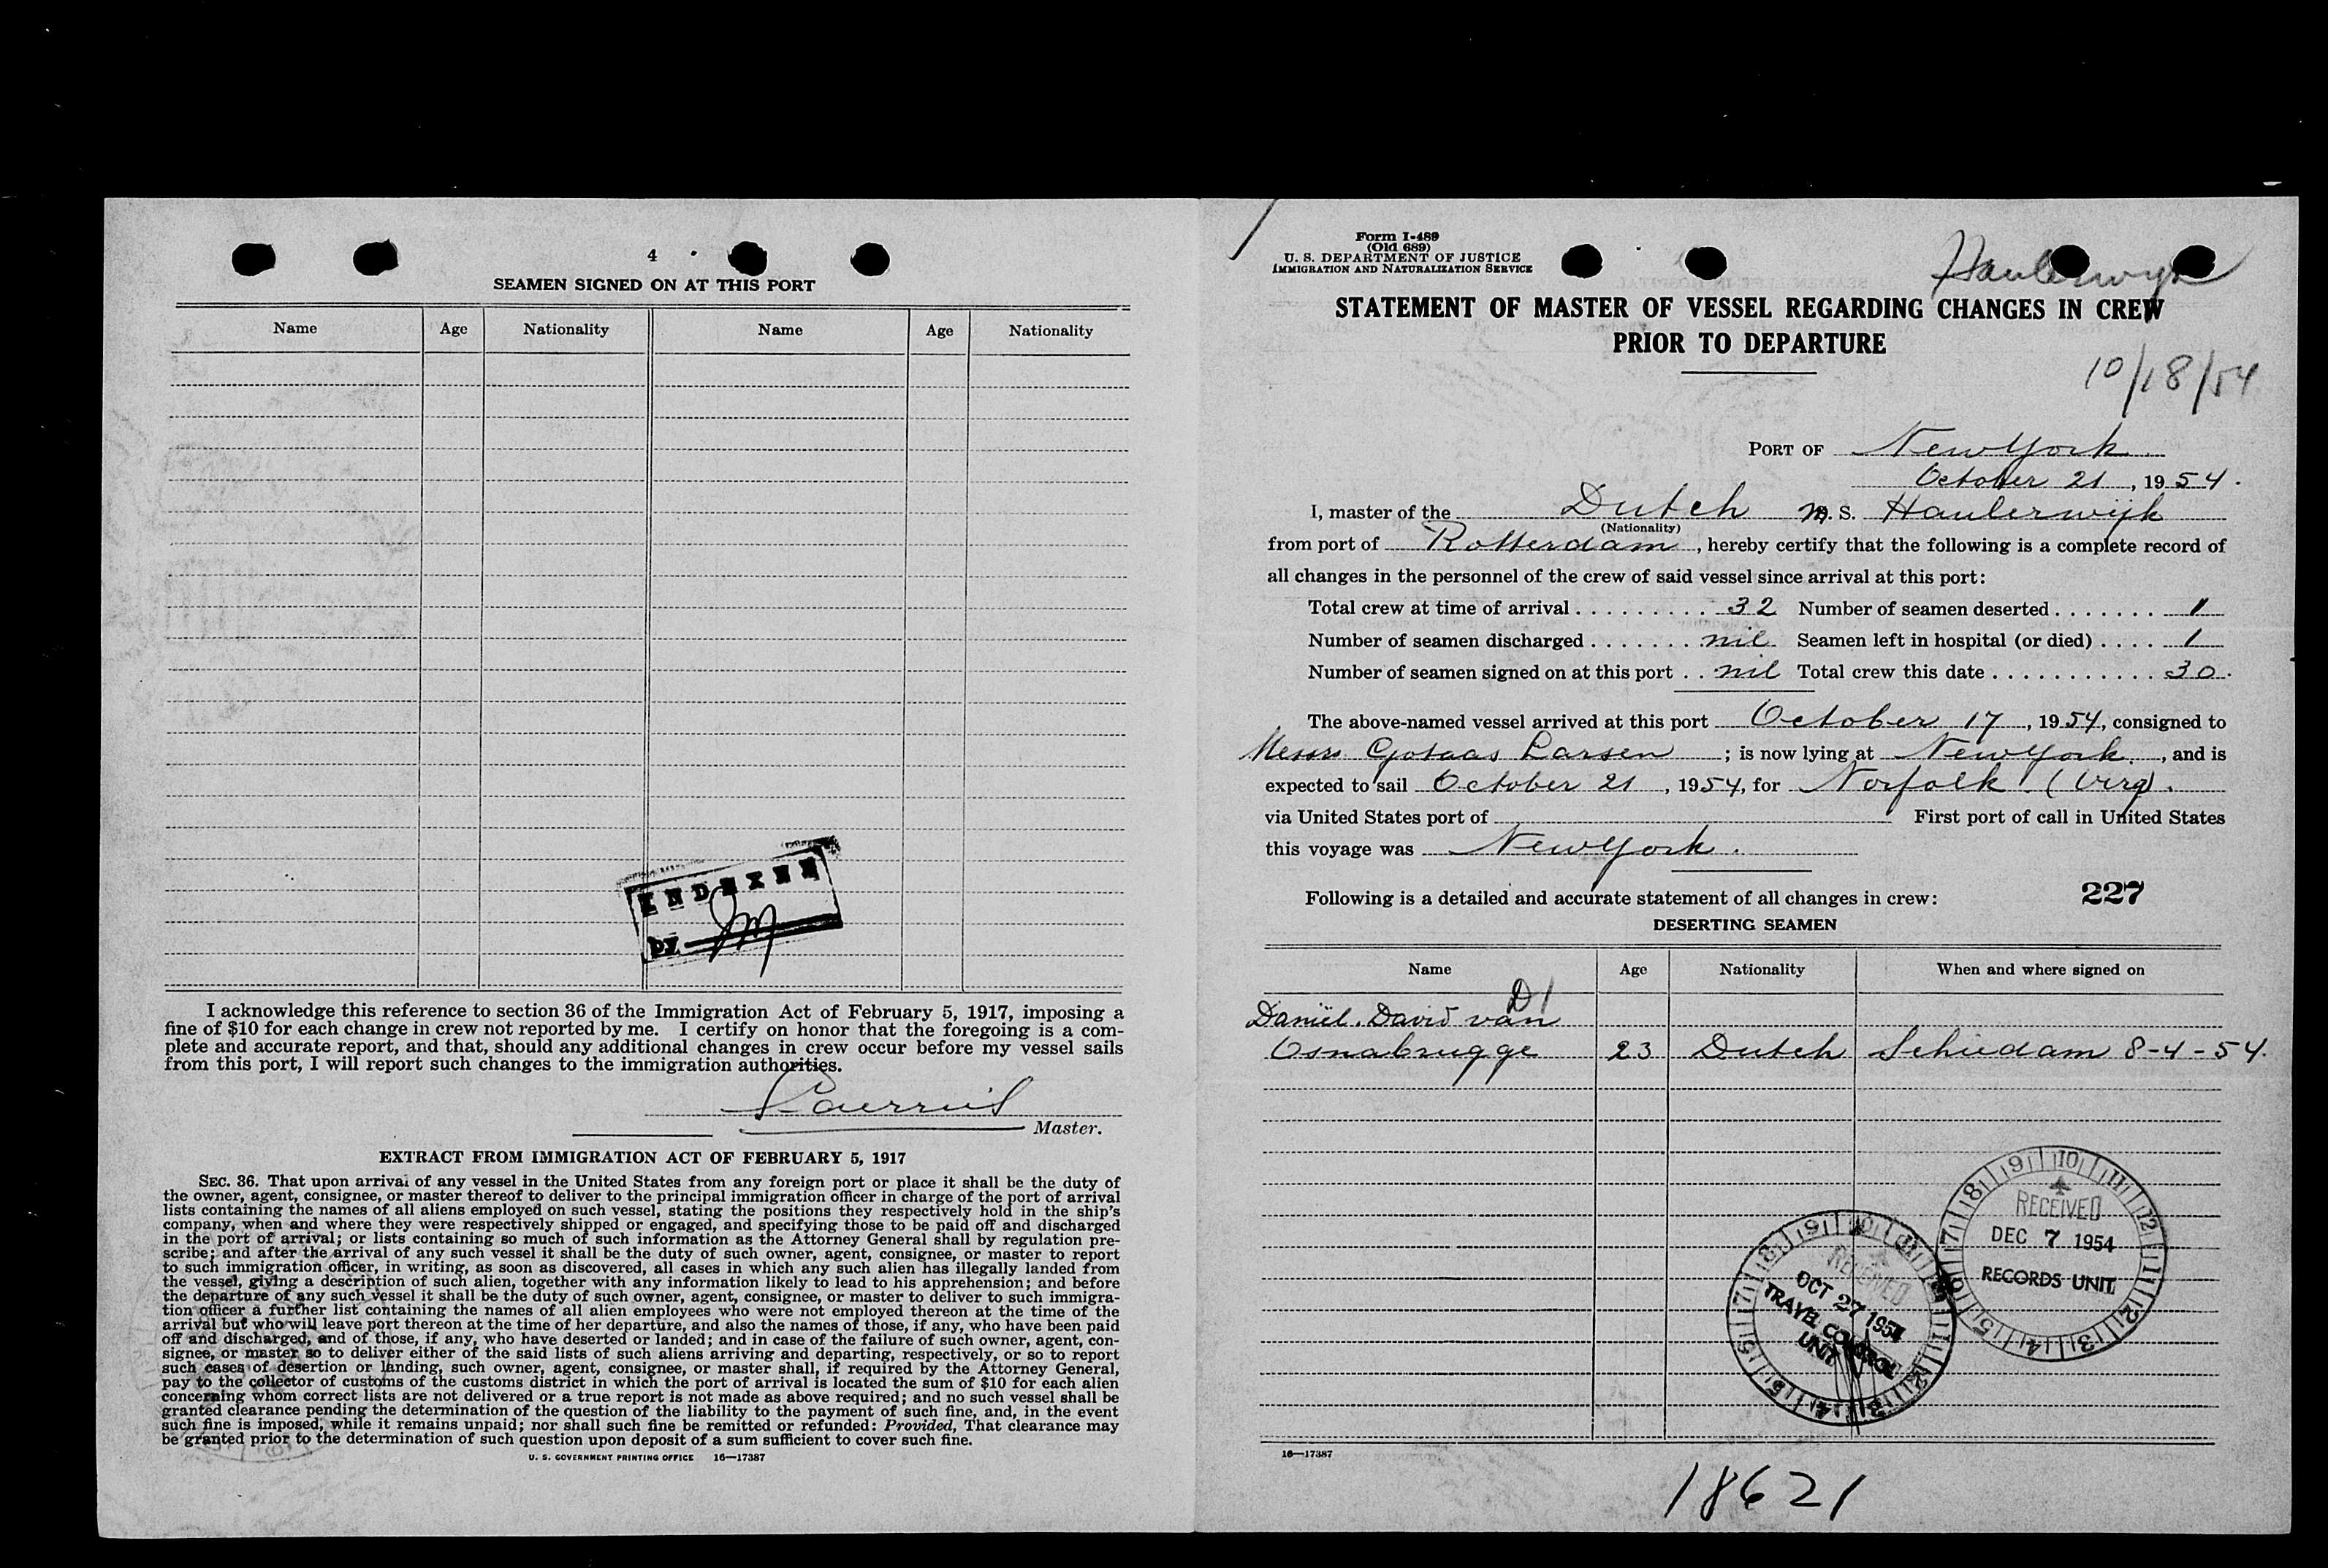 4
SEAMEN SIGNED ON AT THIS PORT
Name Age Nationality Name Age Nationality
INDEXED
by
I acknowledge this reference to section 36 of the Immigration Act of February 5, 1917, imposing a
fine of $10 for each change in crew not reported by me. I certify on honor that the foregoing is a com-
plete and accurate report, and that, should any additional changes in crew occur before my vessel sails
from this port, I will report such changes to the immigration authorities.
Master.
EXTRACT FROM IMMIGRATION ACT OF FEBRUARY 5, 1917
SEC. 36. That upon arrival of any vessel in the United States from any foreign port or place it shall be the duty of
the owner, agent, consignee, or master thereof to deliver to the principal immigration officer in charge of the port of arrival
lists containing the names of all aliens employed on such vessel, stating the positions they respectively hold in the ship's
company, when and where they were respectively shipped or engaged, and specifying those to be paid off and discharged
in the port of arrival; or lists containing so much of such information as the Attorney General shall by regulation pre-
scribe; and after the arrival of any such vessel it shall be the duty of such owner, agent, consignee, or master to report
to such immigration officer, in writing, as soon as discovered, all cases in which any such alien has illegally landed from
the vessel, giving a description of such alien, together with any information likely to lead to his apprehension; and before
the departure of any such vessel it shall be the duty of such owner, agent, consignee, or master to deliver to such immigra-
tion officer a further list containing the names of all alien employees who were not employed thereon at the time of the
arrival but who will leave port thereon at the time of her departure, and also the names of those, if any, who have been paid
off and discharged, and of those, if any, who have deserted or landed; and in case of the failure of such owner, agent, con-
signee, or master so to deliver either of the said lists of such aliens arriving and departing, respectively, or so to report
such cases of desertion or landing, such owner, agent, consignee, or master shall, if required by the Attorney General,
pay to the collector of customs of the customs district in which the port of arrival is located the sum of $10 for each alien
concerning whom correct lists are not delivered or a true report is not made as above required; and no such vessel shall be
granted clearance pending the determination of the question of the liability to the payment of such fine, and, in the event
such fine is imposed, while it remains unpaid; nor shall such fine be remitted or refunded: Provided, That clearance may
be granted prior to the determination of such question upon deposit of a sum sufficient to cover such fine.
U. S. GOVERNMENT PRINTING OFFICE 16—17387
Form I-489
(Old 689)
U. S. DEPARTMENT OF JUSTICE
IMMIGRATION AND NATURALIZATION SERVICE
Haulerwijk
STATEMENT OF MASTER OF VESSEL REGARDING CHANGES IN CREW
PRIOR TO DEPARTURE
10/18/54
PORT OF New York
October 21, 1954.
I, master of the Dutch M. S. Haulerwijk
(Nationality)
from port of Rotterdam, hereby certify that the following is a complete record of
all changes in the personnel of the crew of said vessel since arrival at this port:
Total crew at time of arrival 32 Number of seamen deserted 1
Number of seamen discharged nil Seamen left in hospital (or died) 1
Number of seamen signed on at this port nil Total crew this date 30.
The above-named vessel arrived at this port October 17, 1954, consigned to
Messrs Gotaas Larsen; is now lying at New York, and is
expected to sail October 21, 1954, for Norfolk (Virg).
via United States port of First port of call in United States
this voyage was New York.
Following is a detailed and accurate statement of all changes in crew: 227
DESERTING SEAMEN
Name Age Nationality When and where signed on
D1
Daniël. David van
Osnabrugge 23 Dutch Schiedam 8-4-54.
RECEIVED
DEC 7 1954
RECORDS UNIT
RECEIVED
OCT 27 1954
TRAVEL CONTROL
UNIT
16—17387
18621